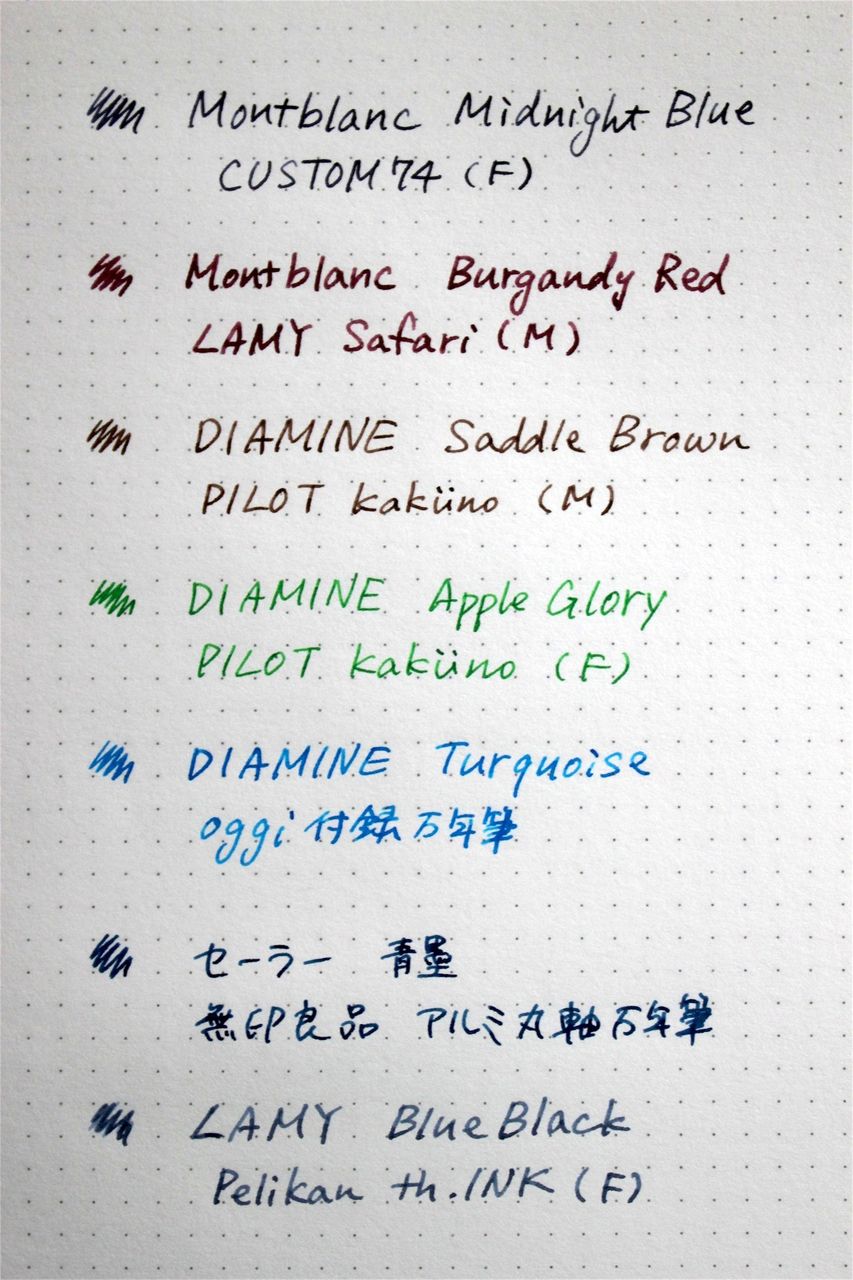 Montblanc Midnight Blue
CUSTOM 74 (F)
Montblanc Burgandy Red
LAMY Safari (M)
DIAMINE Saddle Brown
PILOT kaküno (M)
DIAMINE Apple Glory
PILOT kaküno (F)
DIAMINE Turquoise
oggi 付録万年筆
セーラー 青墨
無印良品 アルミ丸軸万年筆
LAMY Blue Black
Pelikan th.INK (F)